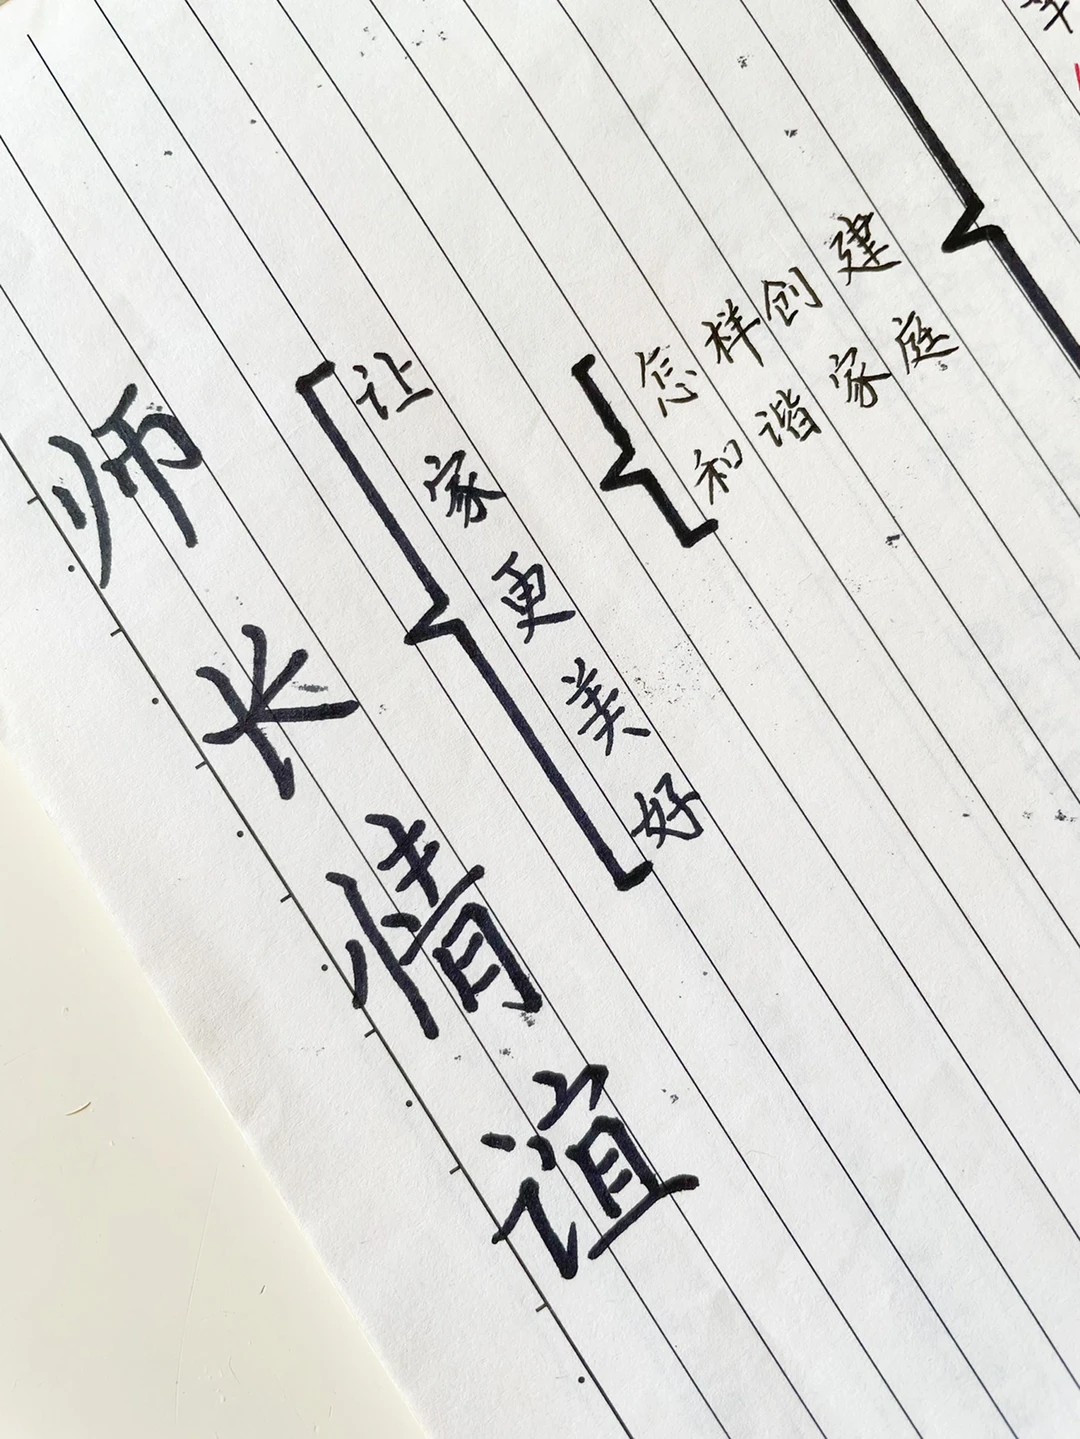 师长情谊
让家更美好
怎样创建
和谐家庭